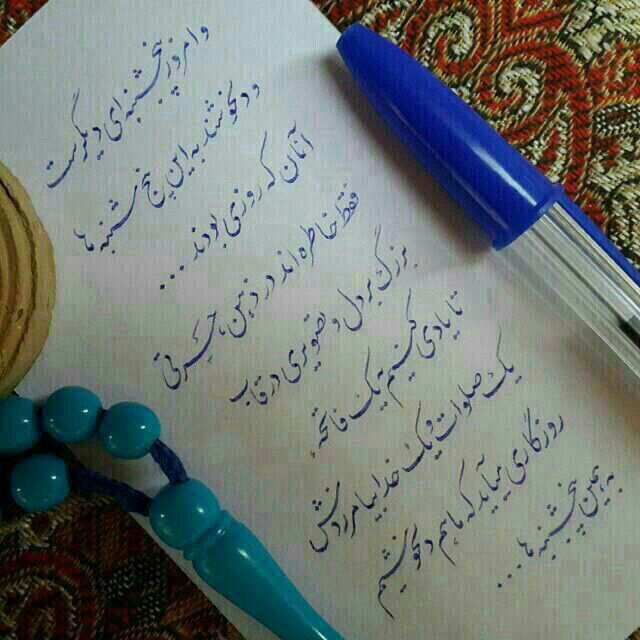 و امروز پنجشنبه‌ای دیگر است
و دلخوش شده به این پنج شنبه ها
آنان که روزی بودند ...
فقط خاطره اند در ذهن ها،
بزرگ بر دل و تصویری در قاب
تا یادی کنیم یک فاتحه،
یک صلوات و یک خدا بیامرزدش
روزگاری میآید که ما هم دلخوشیم
به همین پنجشنبه ها ...